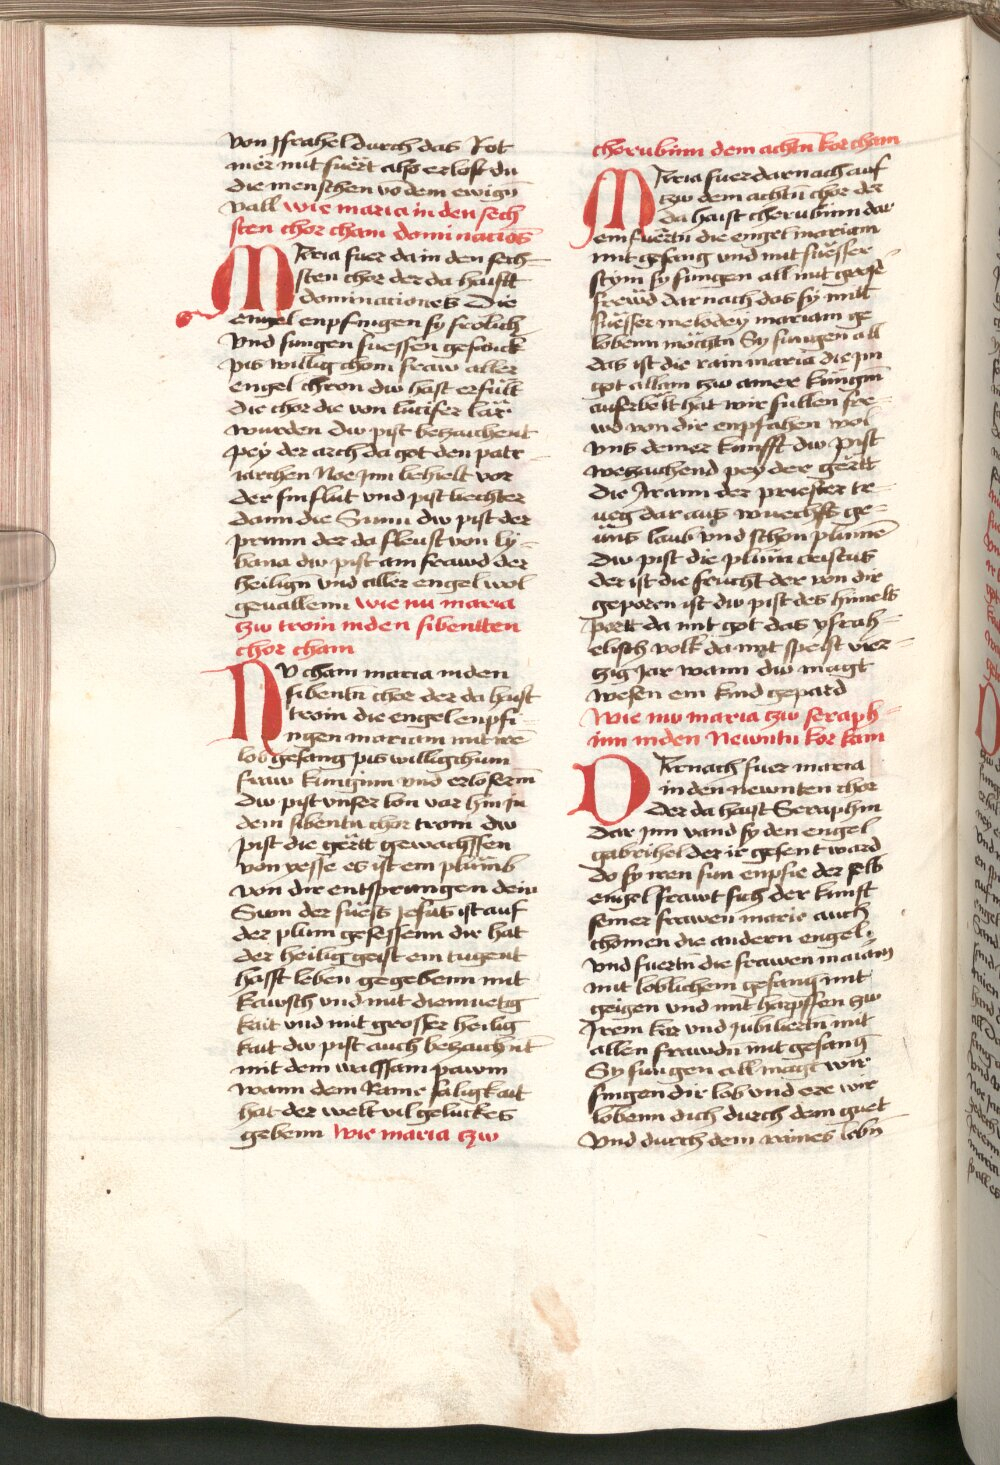 von Israhel durch das Rot
mer mit fuert also erlost du
die menschen vo dem ewign
vall wie maria in den sech
sten chor cham dominacios
Maria fuer da in den sech-
sten chor der da haisst
dominationes Die
engel enpfingen sy frölich
Vnd sungen suessen gesanck
pis willig chom fraw aller
engel chron dw hast erfült
die chor die von lucifer lär
wurden dw pist bezaichent
pey der arch da got den patr-
iarchen Noe jnn behielt vor
der sinflut vnd pist liechter
dann die Sunn dw pist der
prunn der da fleust von ly-
bana dw pist am frawd der
heilign vnd aller engel wol
geuallenn wie nu maria
tzw troin in den sibentten
chor cham
Nv cham maria in den
sibentn chor der da haist
troin die engel enpfi-
ngen mariam mit ire
lobgesang pis willigchum
fraw kunginn vnd erloserin
dw pist vnser lon var hin in
dem sibentn chor troni dw
pist die gertt gewachssen
von yesse es ist ein plumb
von dir entsprungen dein
Sun der suess Jesus ist auf
der plum gesessenn dir hat
der heilig geist ein tugent
hafft leben gegebenn mit
kawsch vnd mit diemuetig
kait vnd mit grosser heilig
kait dw pist auch bezaichnt
mit dem wachssam pawm
wann dem Raine saligkait
hat der welt vil geluckes
gebenn wie maria tzw
cherubinn dem achtn kor cham
Maria fuer darnach auf
tzw dem achtn chor der
da haist cherubinn dar
ein fuertn die engel mariam
mit gesang vnd mit suesser
stym sy sungen all mit gross
frewd dar nach das sy mitt
suesser melodey mariam ge
lobenn mochtn Sy sungen all
das ist die rain maria die jm
got allain tzw ainer kungin
auserbelt hat wir sullen fre-
wd von dir enpfahen wol
vns deiner kunfft dw pist
bezaichend pey der gertt
die Aaron der priester tr-
ueg dar aus wuechs ge-
uns laub vnd schon plumen
Dw pist die plum cristus
der ist die frucht der von dir
geporen ist dw pist des himels
port da mit got das ysrah-
elisch volk da mit speist vier-
tzig jar wann dw magt
wesen ein kind gepard
Wie nw maria tzw seraph-
inn in den Newntn kor kam
Darnach fuer maria
in den newnten chor
Der da haist Seraphin
dar jnn vand sy den engel
gabrihel der ir gesent ward
do sy iren sun enpfie der selb
engel frawt sich der kunft
seiner frawen marie auch
chomen die andern engel
vnd fuertn die frawen mariam
mit loblichem gesang mit
geigen vnd mit harpffen tzw
Irem kor vnd jubiliertn mit
allen frawdn mit gesang
Sy sungen all magt wir
singen dir lob vnd ere wir
lobenn dich durch dein guet
Vnd durch dein raines lebn